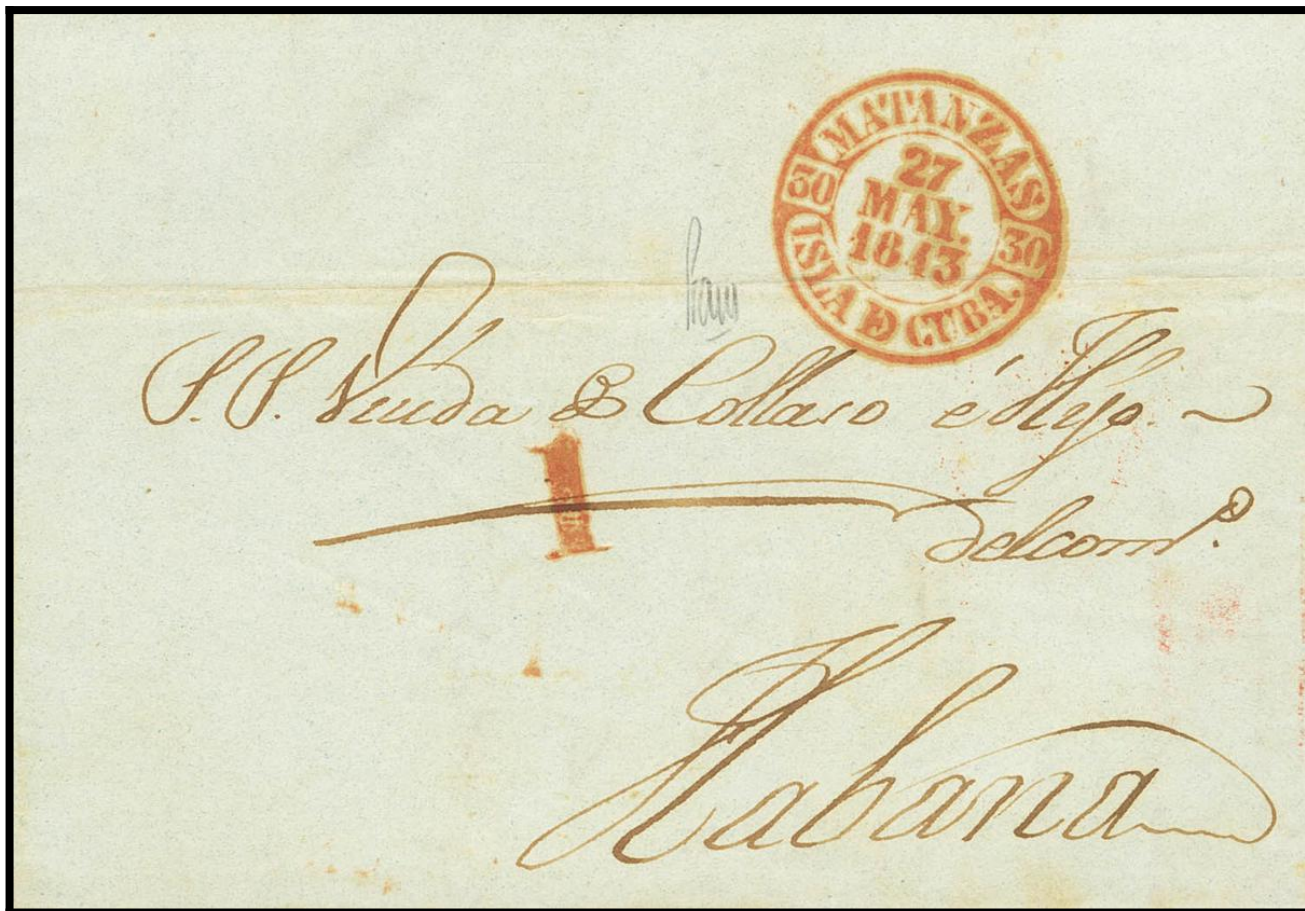 MATANZAS
30 27 30
MAY.
1843
ISLA DE CUBA.
S.S. Viuda de Collaso é Hijo.
1
del comº.
Habana